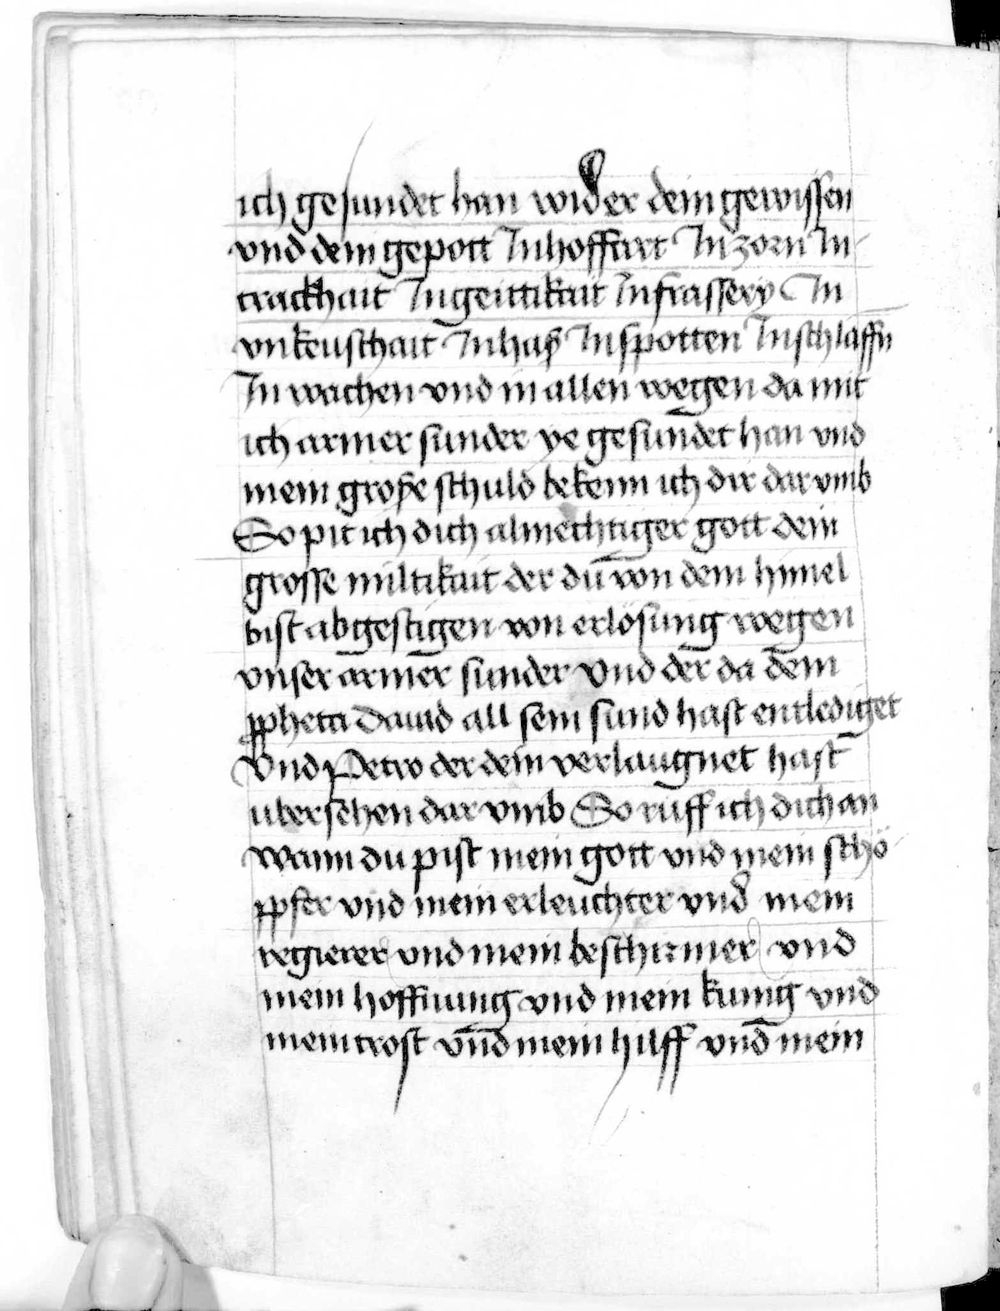 ich gesundet han wider dein gewissen
vnd dein gepott In hoffart In zorn In
trackhait In geittikait In frasserÿ In
vnkeuschait In haß In spotten In schlaffn
In wachen vnd in allen wegen da mit
ich armer sunder ye gesundet han vnd
mein große schuld bekenn ich dir dar vmb
So pit ich dich almechtiger gott dein
grosse miltikait der du von dem himel
bist abgestigen von erlösung wegen
vnser armer sunder Vnd der da dem
ppheten Dauid all sein sund hast entlediget
Vnd Petro der dein verlaugnet hast
übersehen dar vmb So rüff ich dich an
wann du pist mein gott vnd mein schö
ppfer vnd mein erleuchter vnd mein
regierer vnd mein beschirmer vnd
mein hoffnung vnd mein kunig vnd
mein trost vnd mein hilff vnd mein